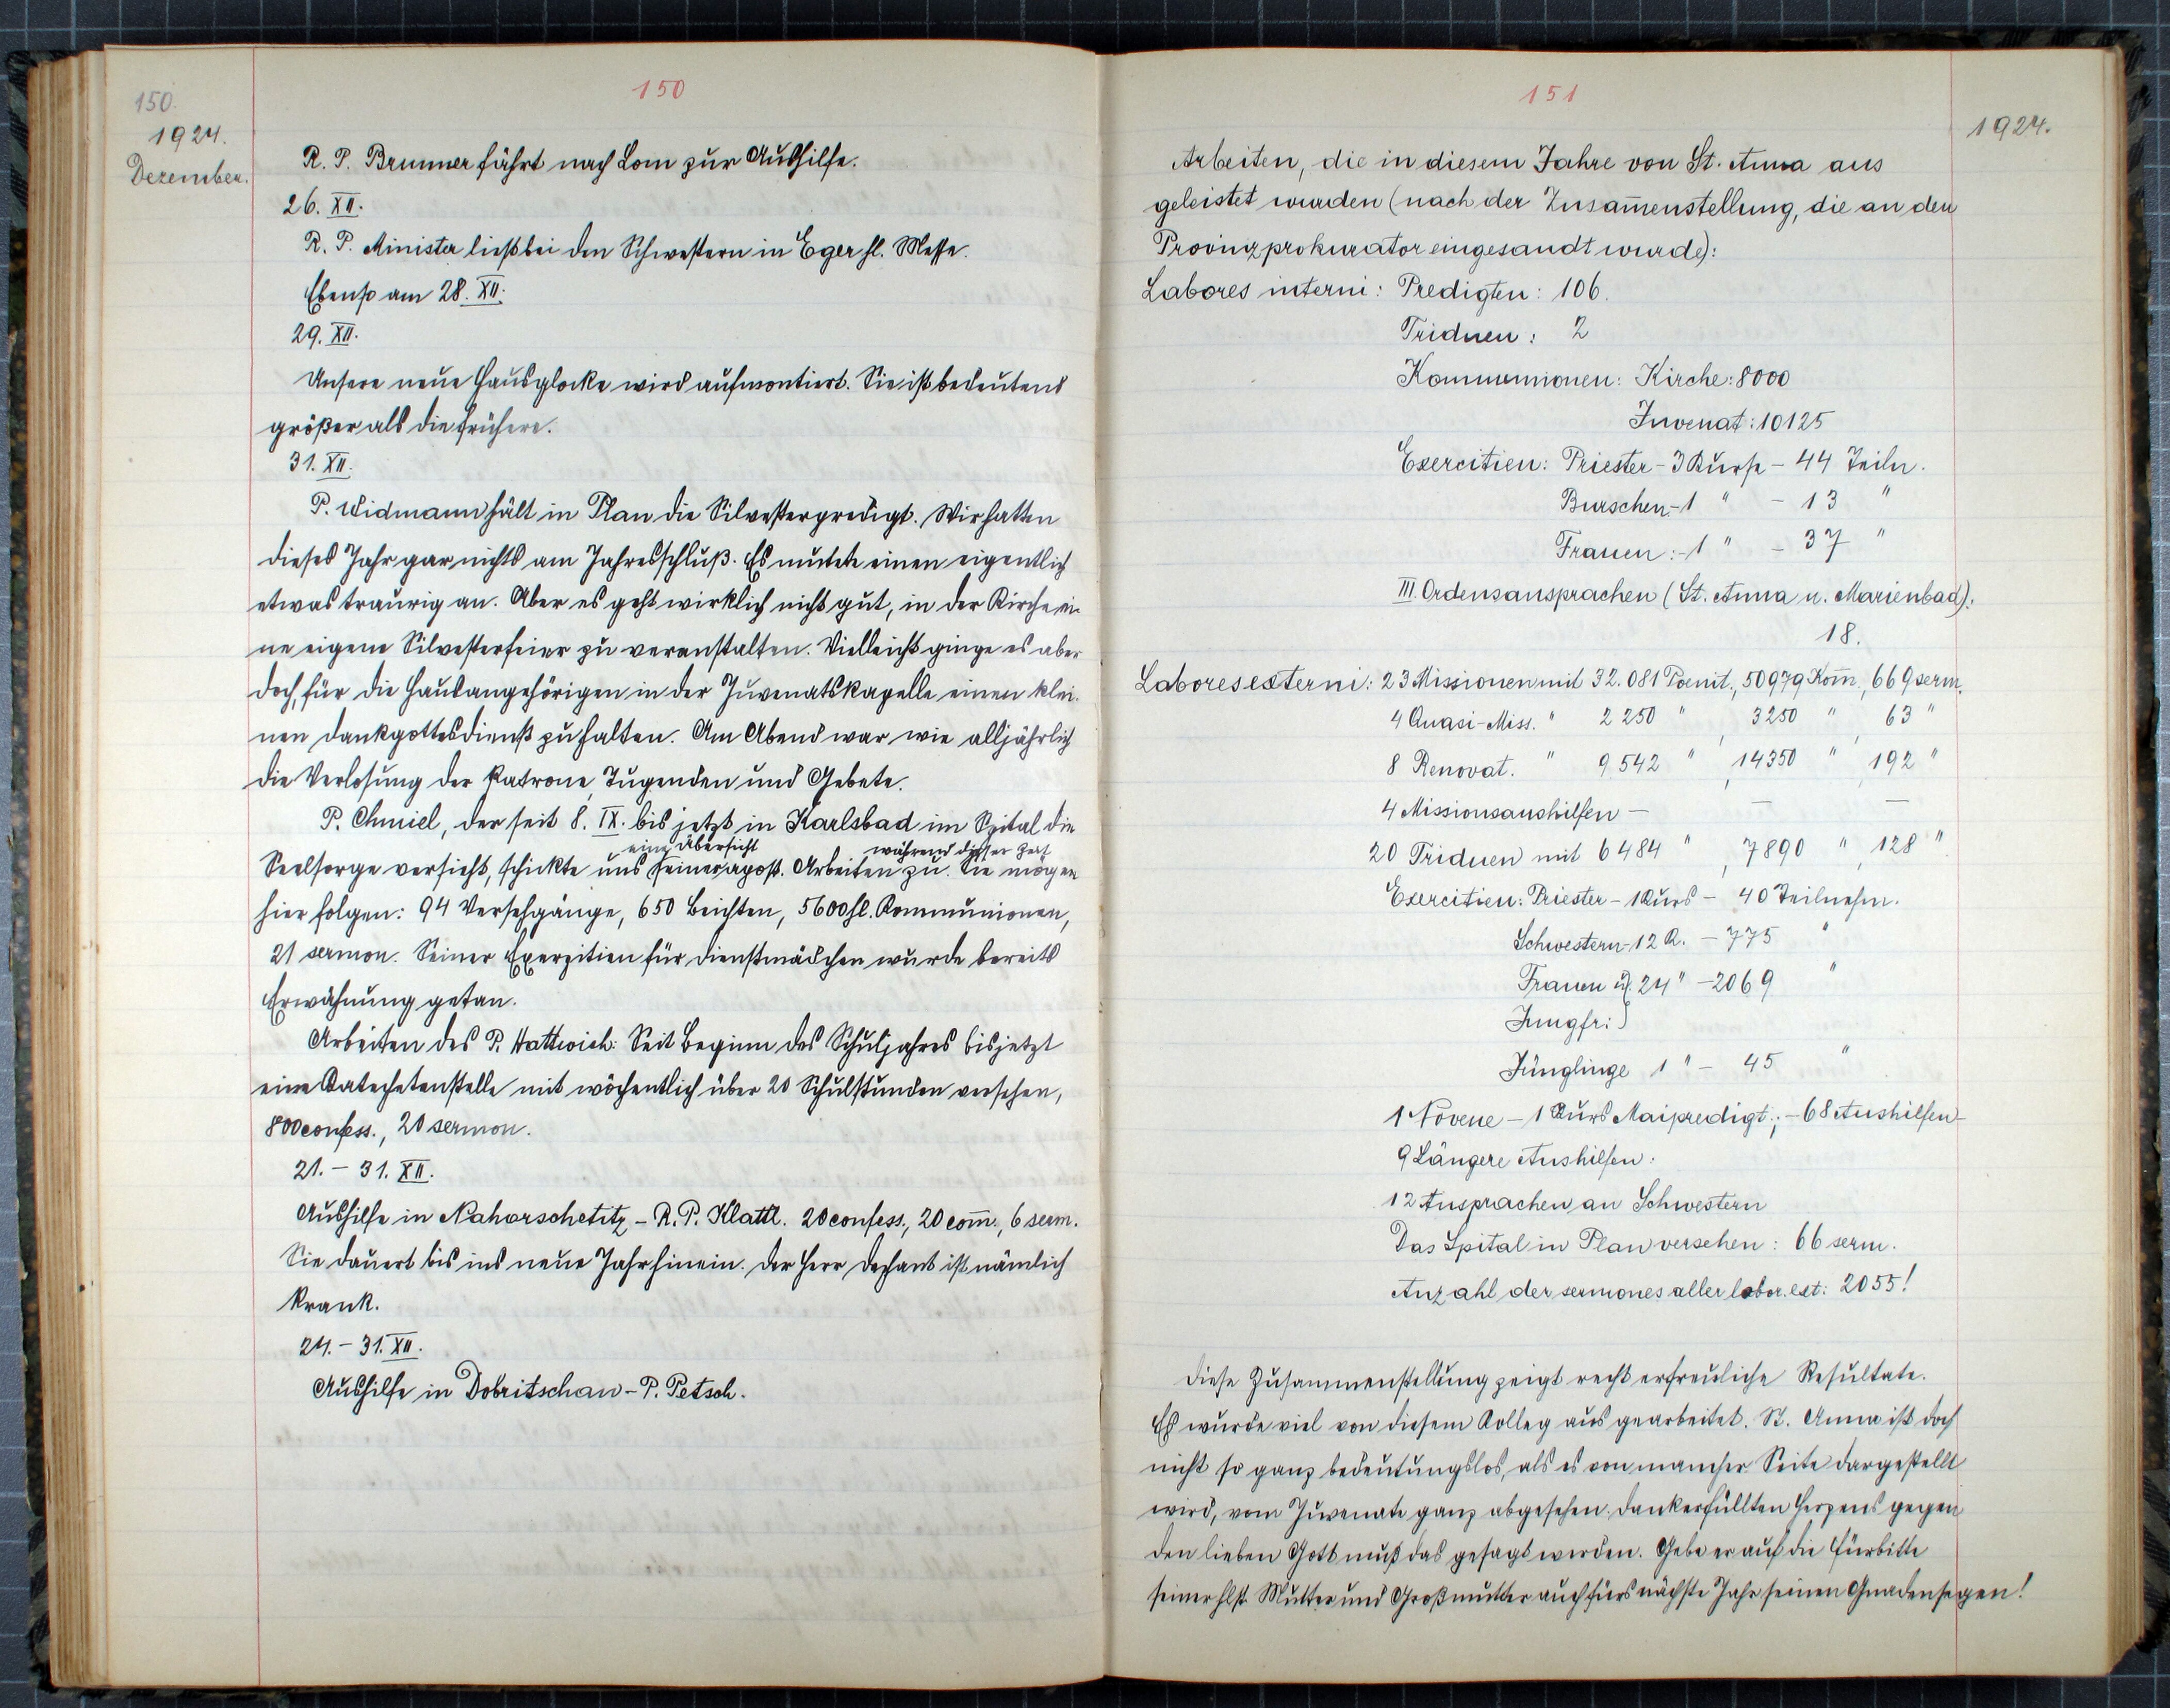 150.
1924.
Dezember.
150
R. P. Brunner fährt nach Lom zur Aushilfe.
26. XII.
R. P. Minister liest bei den Schwestern in Eger hl. Messe.
Ebenso am 28. XII.
29. XII.
Unsere neue Hausglocke wird aufmontiert. Sie ist bedeutend
größer als die frühere.
31. XII.
P. Widmann hält in Plan die Silvesterpredigt. Wir hatten
dieses Jahr gar nichts am Jahresschluß. Es mutete einen eigentlich
etwas traurig an. Aber es geht wirklich nicht gut, in der Kirche ei-
ne eigene Silvesterfeier zu veranstalten. Vielleicht ginge es aber
doch, für die Hausangehörigen in der Juvenatskapelle einen klei-
nen Dankgottesdienst zu halten. Am Abend war wie alljährlich
die Verlosung der Patrone, Tugenden und Gebete.
P. Chmiel, der seit 8. IX. bis jetzt in Karlsbad im Spital die
eine Übersicht während dieser Zeit
Seelsorge versieht, schickte uns seiner apost. Arbeiten zu. Sie mögen
hier folgen: 94 Versehgänge, 650 Beichten, 5600 hl. Kommunionen,
21 sermon. Seiner Exerzitien für Dienstmädchen wurde bereits
Erwähnung getan.
Arbeiten des P. Hattwich: Seit Beginn des Schuljahres bis jetzt
eine Katechetenstelle mit wöchentlich über 20 Schulstunden versehen,
800 confess., 20 sermon.
21. - 31. XII.
Aushilfe in Nahorschetitz - R. P. Klattl. 20 confess., 20 com̄., 6 serm.
Sie dauert bis ins neue Jahr hinein. Der Herr Dechant ist nämlich
krank.
24. - 31. XII.
Aushilfe in Dobritschan - P. Petsch.
151
1924.
Arbeiten, die in diesem Jahre von St. Anna aus
geleistet wurden (nach der Zusam̄enstellung, die an den
Provinzprokurator eingesandt wurde):
Labores interni: Predigten: 106.
Triduen: 2
Kommunionen: Kirche: 8000
Juvenat: 10125
Exercitien: Priester - 3 Kurse - 44 Teiln.
Burschen - 1 " - 13 "
Frauen: - 1 " - 37 "
III. Ordensansprachen (St. Anna u. Marienbad):
18.
Labores externi: 23 Missionen mit 32.081 Poenit., 50979 Kom̄., 669 serm.
4 Quasi-Miss. " 2250 " , 3250 " , 63 "
8 Renovat. " 9542 " , 14350 " , 192 "
4 Missionsaushilfen — — —
20 Triduen mit 6484 " , 7890 " , 128 "
Exercitien: Priester - 1 Kurs - 40 Teilnehm.
Schwestern - 12 K. - 775 "
Frauen u. } 24 " - 2069 "
Jungfr: }
Jünglinge 1 " - 45 "
1 Novene - 1 Kurs Maipredigt; - 68 Aushilfen -
9 Längere Aushilfen:
12 Ansprachen an Schwestern
Das Spital in Plan versehen: 66 serm.
Anzahl der sermones aller labor. ext: 2055!
Diese Zusammenstellung zeigt recht erfreuliche Resultate.
Es wurde viel von diesem Kolleg aus gearbeitet. St. Anna ist doch
nicht so ganz bedeutungslos, als es von mancher Seite dargestellt
wird, vom Juvenate ganz abgesehen. Dankerfüllten Herzens gegen
den lieben Gott muß das gesagt werden. Gebe er auf die Fürbitte
seiner hlst. Mutter und Großmutter auch fürs nächste Jahr seinen Gnadensegen!